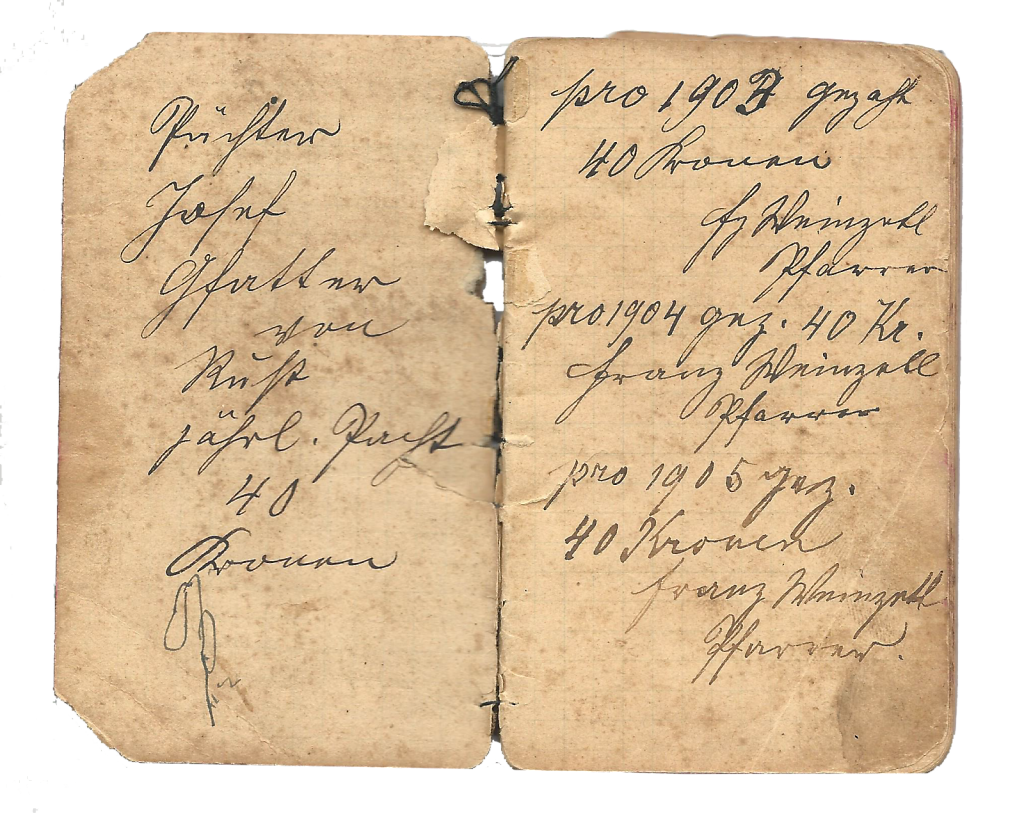 Pächter
Josef
Gfatter
von
Rust
jährl. Pacht
40
Kronen
pro 1903 gezahlt
40 Kronen
Fz Weinzetl
Pfarrer
pro 1904 gez. 40 Kr.
Franz Weinzetl
Pfarrer
pro 1905 gez.
40 Kronen
Franz Weinzetl
Pfarrer.